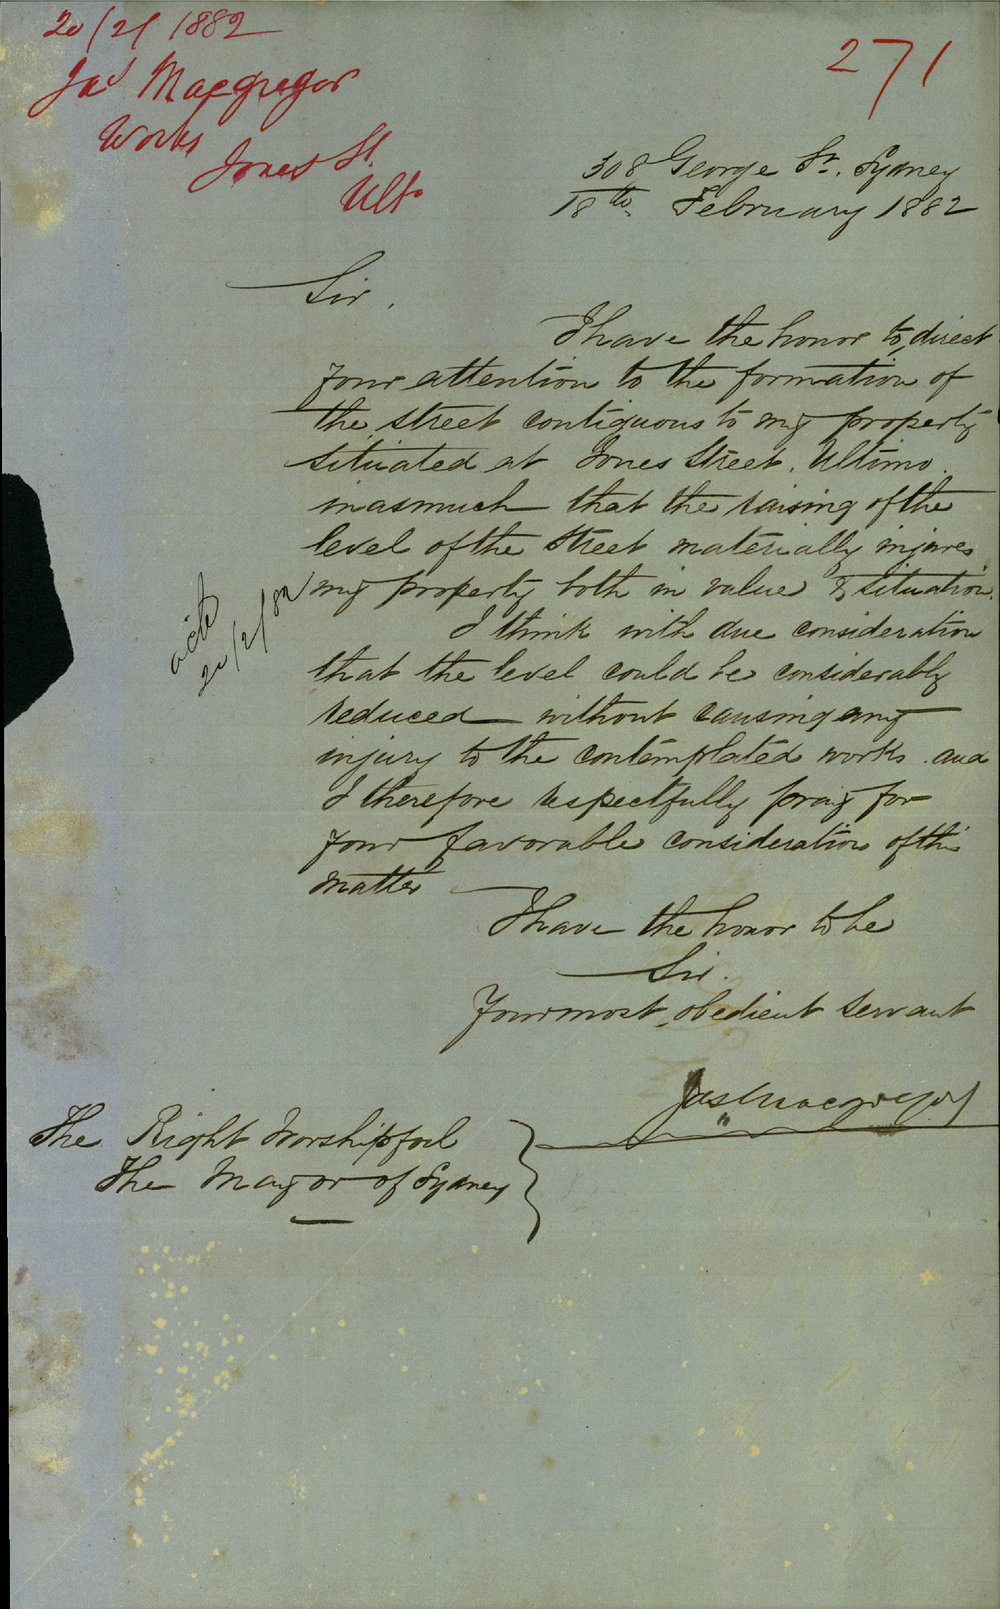 20/2/1882
Jas Macgregor
Works
Jones St.
Ulto
271
308 George St. Sydney
18th February 1882
Sir,
I have the honor to direct
your attention to the formation of
the street contiguous to my property
situated at Jones Street, Ultimo.
inasmuch that the raising of the
level of the street materially injures
my property both in value & situation.
20/2/82
I think with due consideration
that the level could be considerably
reduced without causing any
injury to the contemplated works and
I therefore respectfully pray for
your favorable consideration of this
matter
I have the honor to be
Sir.
Your most obedient servant
Jas Macgregor
The Right Worshipful
The Mayor of Sydney